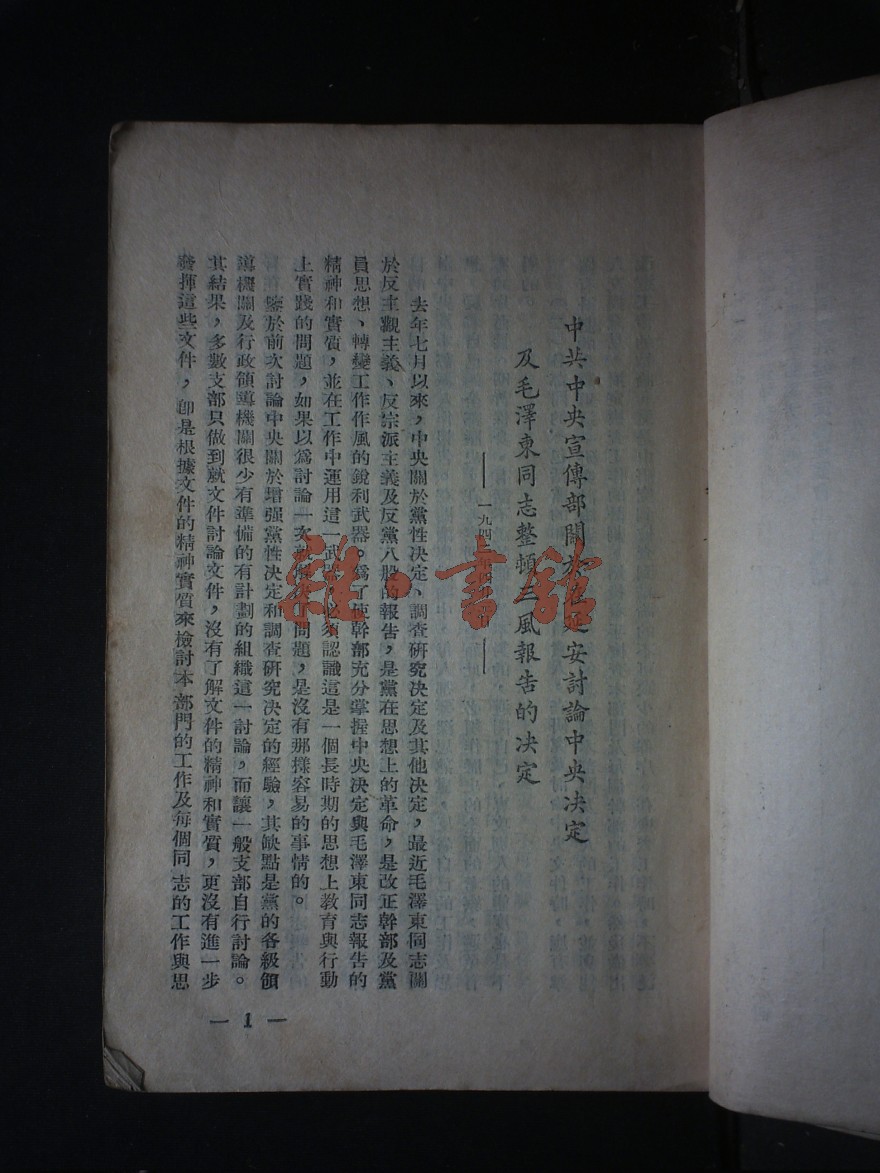 中共中央宣傳部關於在延安討論中央决定
及毛澤東同志整頓三風報告的决定
去年七月以來，中央關於黨性决定、調查研究决定及其他决定，最近毛澤東同志關
於反主觀主義、反宗派主義及反黨八股的報告，是黨在思想上的革命，是改正幹部及黨
員思想、轉變工作作風的銳利武器。爲了使幹部充分掌握中央决定與毛澤東同志報告的
精神和實質，並在工作中運用這一武器，必須認識這是一個長時期的思想上教育與行動
上實踐的問題，如果以爲討論一次就解决了問題，是沒有那樣容易的事情的。
鑒於前次討論中央關於增强黨性决定和調查研究决定的經驗，其缺點是黨的各級領
導機關及行政領導機關很少有準備的有計劃的組織這一討論，而讓一般支部自行討論。
其結果，多數支部只做到就文件討論文件，沒有了解文件的精神和實質，更沒有進一步
發揮這些文件，卽是根據文件的精神實質來檢討本部門的工作及每個同志的工作與思
— 1 —
雜·書館